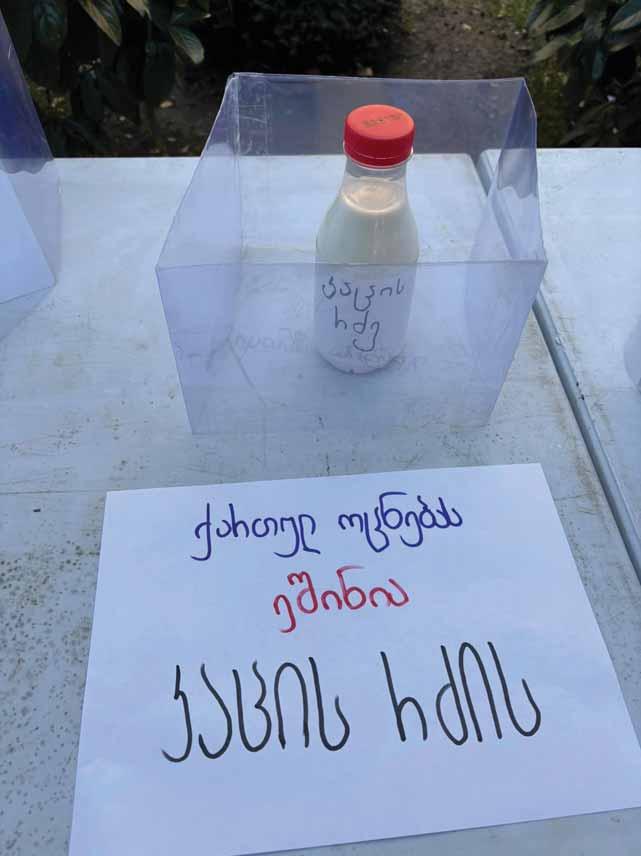 კაცის
რძე
ქართულ ოცნებას
ეშინია
კაცის რძის